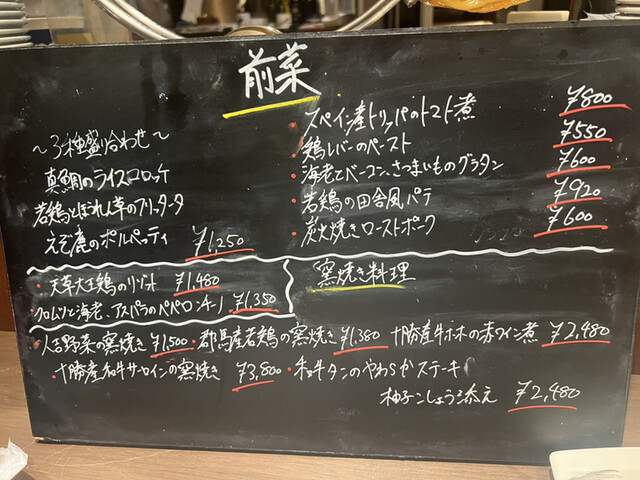 前菜
〜3種盛り合わせ〜
真鯛のライスコロッケ
若鶏とほうれん草のフリッタータ
えぞ鹿のポルペッティ ¥1,250
・スペイン産トリッパのトマト煮 ¥800
・鶏レバーのペースト ¥550
・海老とベーコン、さつまいものグラタン ¥600
・若鶏の田舎風パテ ¥920
・炭火焼きローストポーク ¥600
・天草大王鶏のリゾット ¥1,480
クロムツと海老、アスパラのペペロンチーノ ¥1,350
窯焼き料理
人吉野菜の窯焼き ¥1,500
・群馬産若鶏の窯焼き ¥1,380
十勝産牛ホホの赤ワイン煮 ¥2,480
十勝産和牛サーロインの窯焼き ¥3,800
・和牛タンのやわらかステーキ
柚子こしょう添え ¥2,480